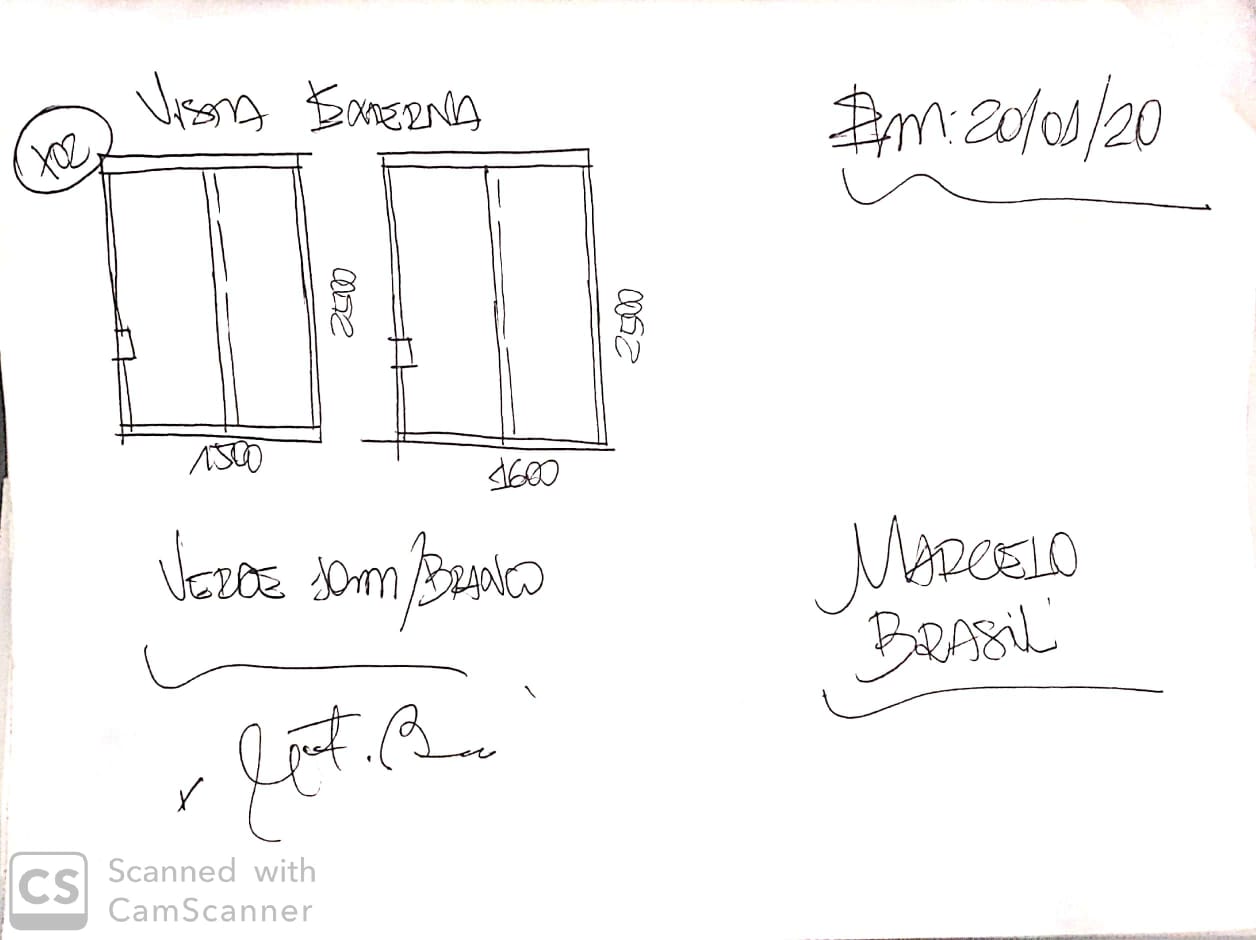 VISTA EXTERNA
Em: 20/01/20
X02
2500
2500
1500
1600
VERDE 10mm/BRANCO
MARCELO
BRASIL
x
CS
Scanned with
CamScanner